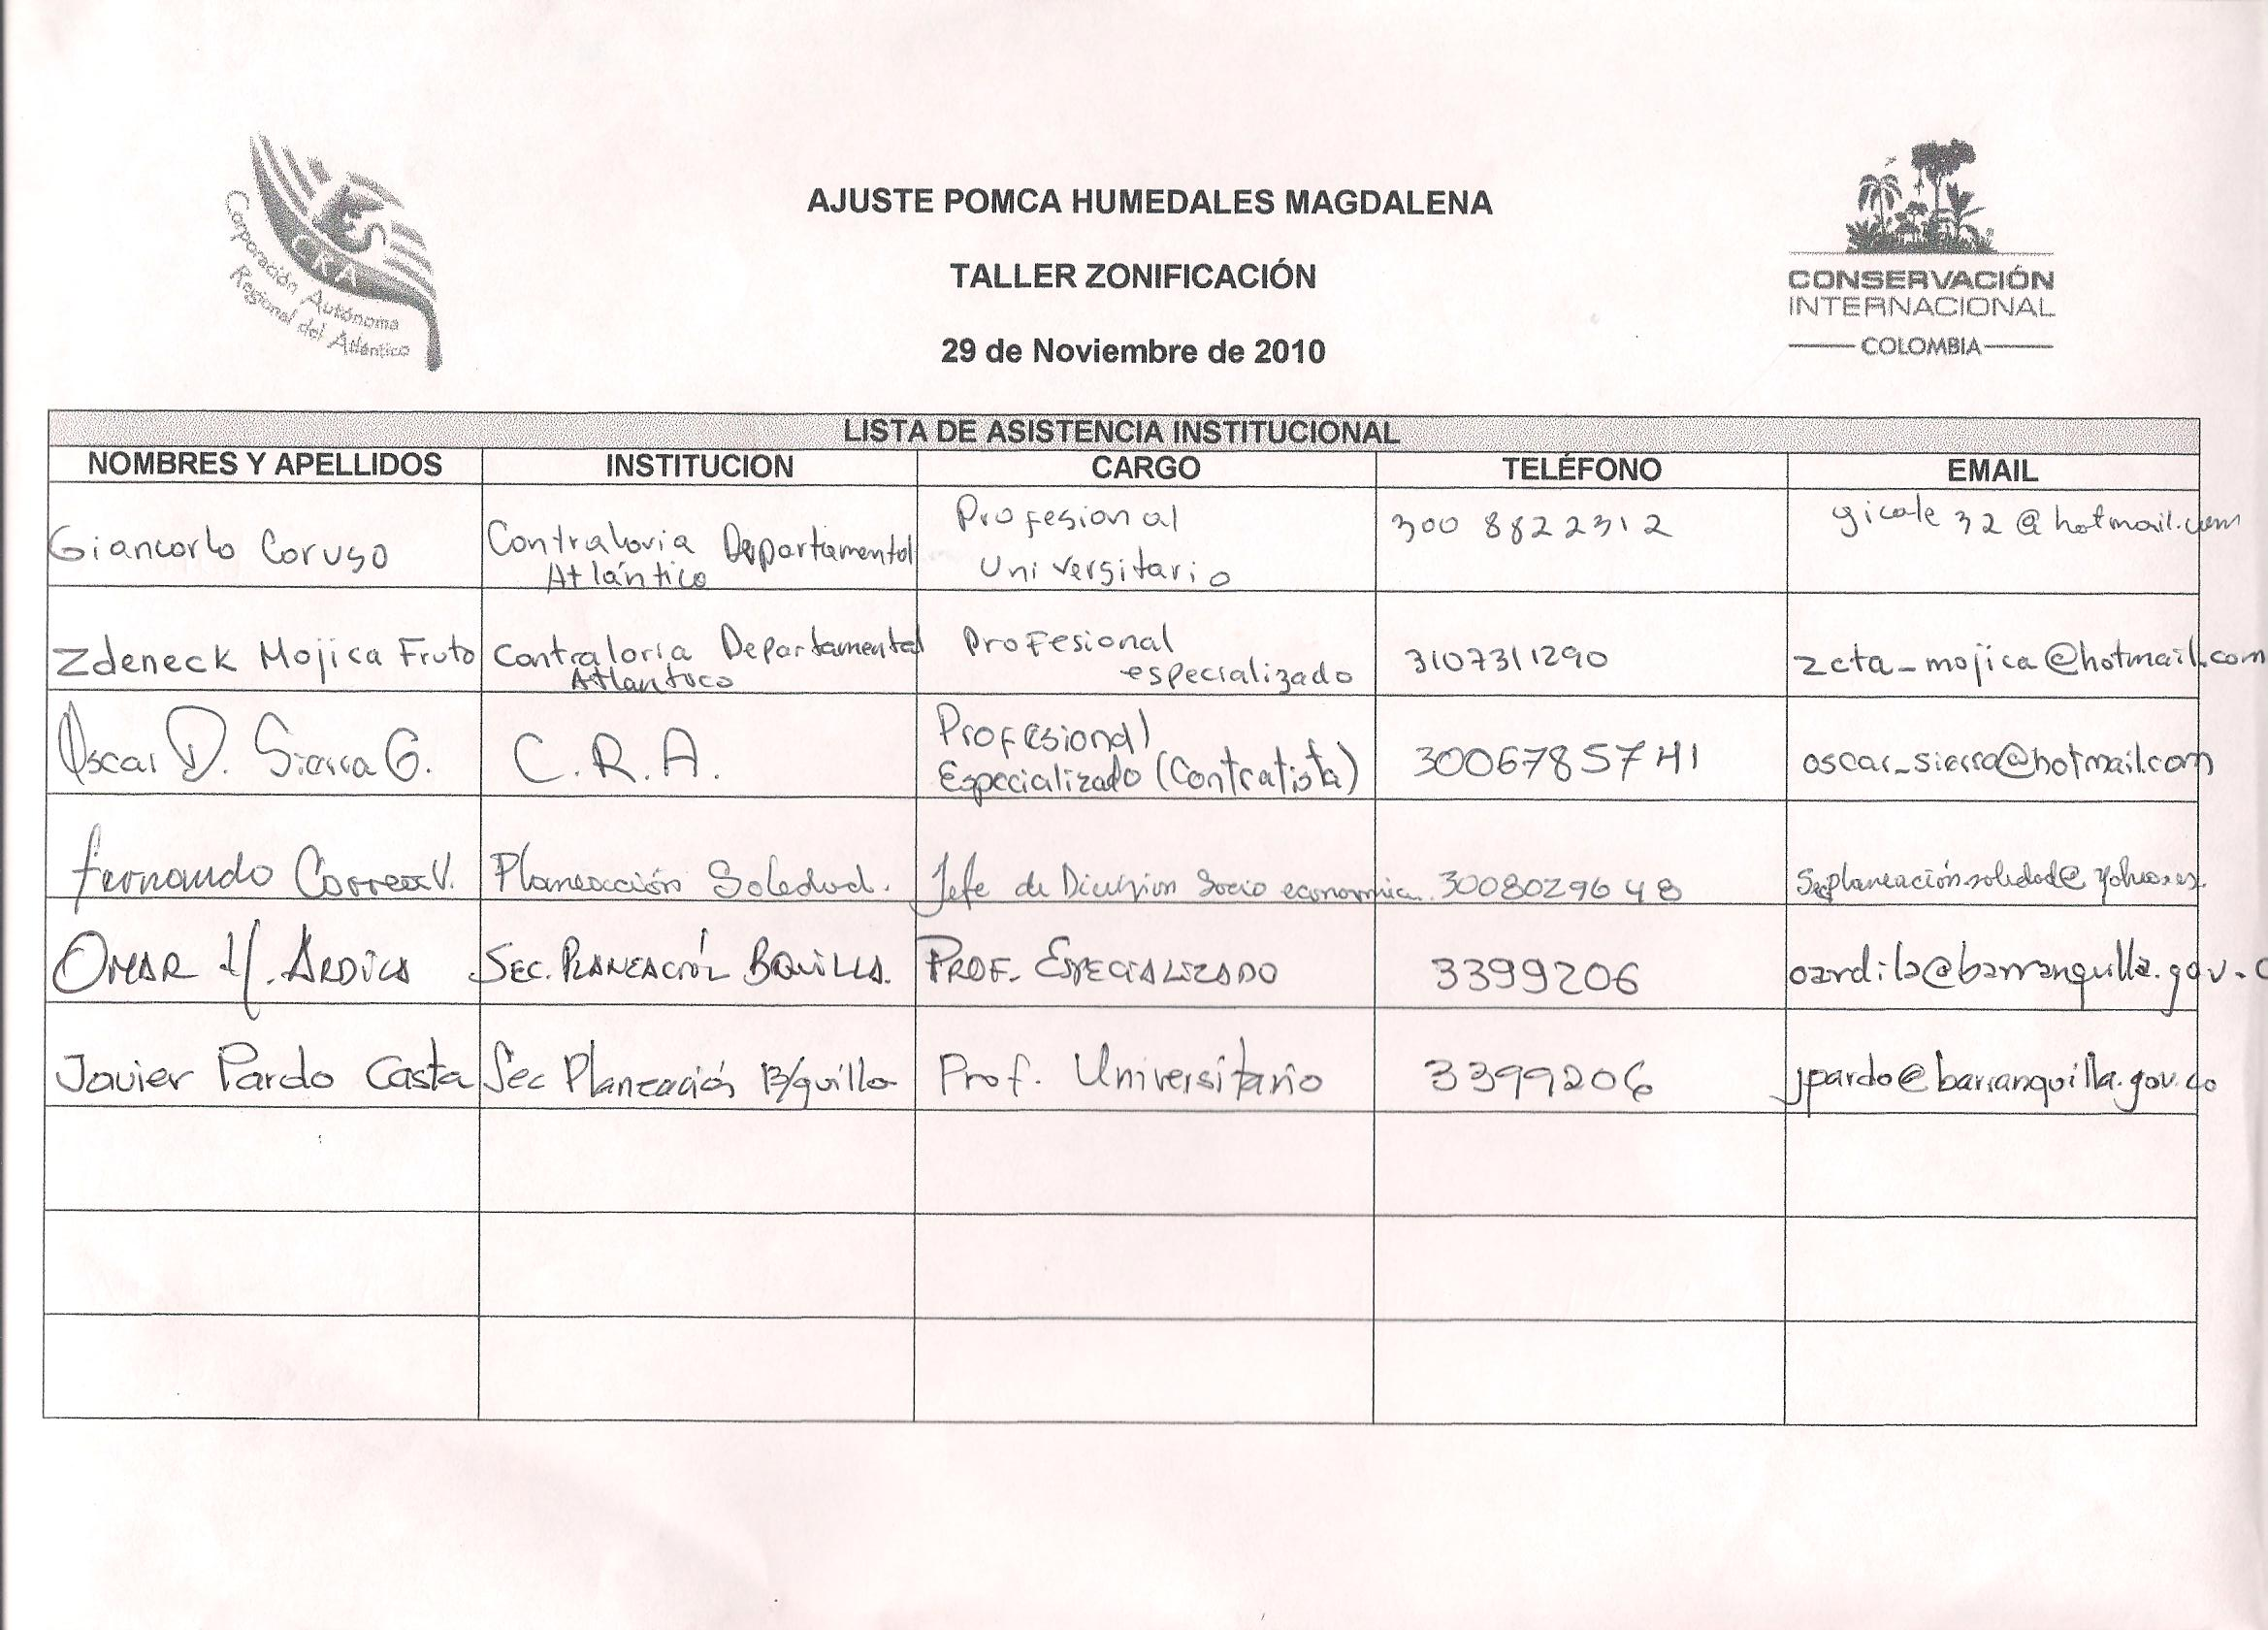 CRA
Corporación Autónoma
Regional del Atlántico
AJUSTE POMCA HUMEDALES MAGDALENA
TALLER ZONIFICACIÓN
29 de Noviembre de 2010
CONSERVACIÓN
INTERNACIONAL
COLOMBIA
LISTA DE ASISTENCIA INSTITUCIONAL
NOMBRES Y APELLIDOS INSTITUCION CARGO TELÉFONO EMAIL
Giancarlo Caruso Contraloria Departamental Atlántico Profesional Universitario 300 8822312 gicale32@hotmail.com
Zdeneck Mojica Fruto Contraloria Departamental Atlantico Profesional especializado 3107311290 zcta_mojica@hotmail.com
Oscar D. Sierra G. C.R.A. Profesional Especializado (Contratista) 3006785741 oscar_sierra@hotmail.com
Fernando Correa V. Planeación Soledad. Jefe de Division Socio economica. 3008029648
OMAR ARDILA SEC. PLANEACIÓN BQUILLA. PROF. ESPECIALIZADO 3399206 oardila@barranquilla.gov.c
Javier Pardo Casta Sec Planeación B/quilla Prof. Universitario 3399206 jpardo@barranquilla.gov.co